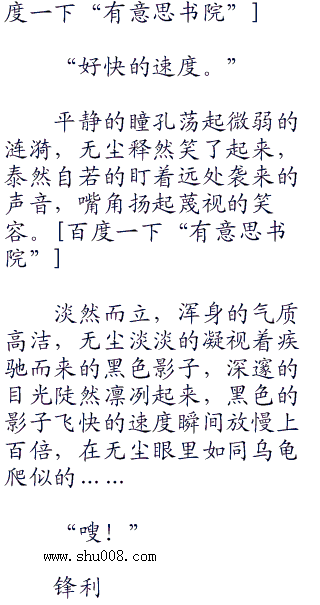 度一下“有意思书院”]
“好快的速度。”
平静的瞳孔荡起微弱的
涟漪，无尘释然笑了起来，
泰然自若的盯着远处袭来的
声音，嘴角扬起蔑视的笑
容。[百度一下“有意思书
院”]
淡然而立，浑身的气质
高洁，无尘淡淡的凝视着疾
驰而来的黑色影子，深邃的
目光陡然凛冽起来，黑色的
影子飞快的速度瞬间放慢上
百倍，在无尘眼里如同乌龟
爬似的……
“嗖！”
www.shu008.com
锋利